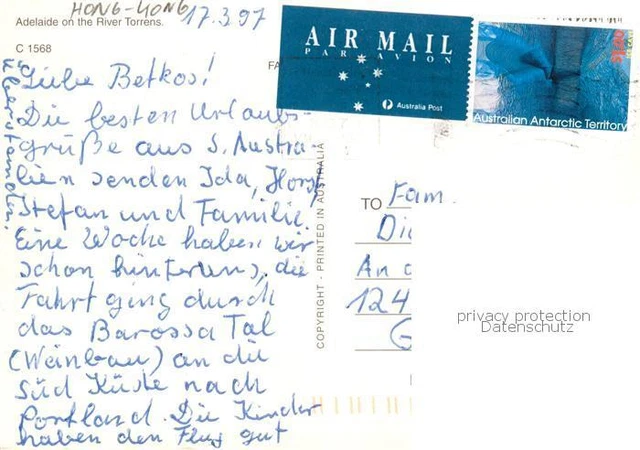 HONG-KONG 17.3.97
Adelaide on the River Torrens.
C 1568
AIR MAIL
PAR AVION
Australia Post
Australian Antarctic Territory
Liebe Betkos!
Die besten Urlaubs-
grüße aus S. Austra-
lien senden Ida, Horst,
Stefan und Familie.
Eine Woche haben wir
schon hinter uns, die
Fahrt ging durch
das Barossa Tal
(Weinbau) an die
Süd Küste nach
Portland. Die Kinder
haben den Flug gut
überstanden.
COPYRIGHT - PRINTED IN AUSTRALIA
TO Fam.
Di
An d
124
G
privacy protection
Datenschutz